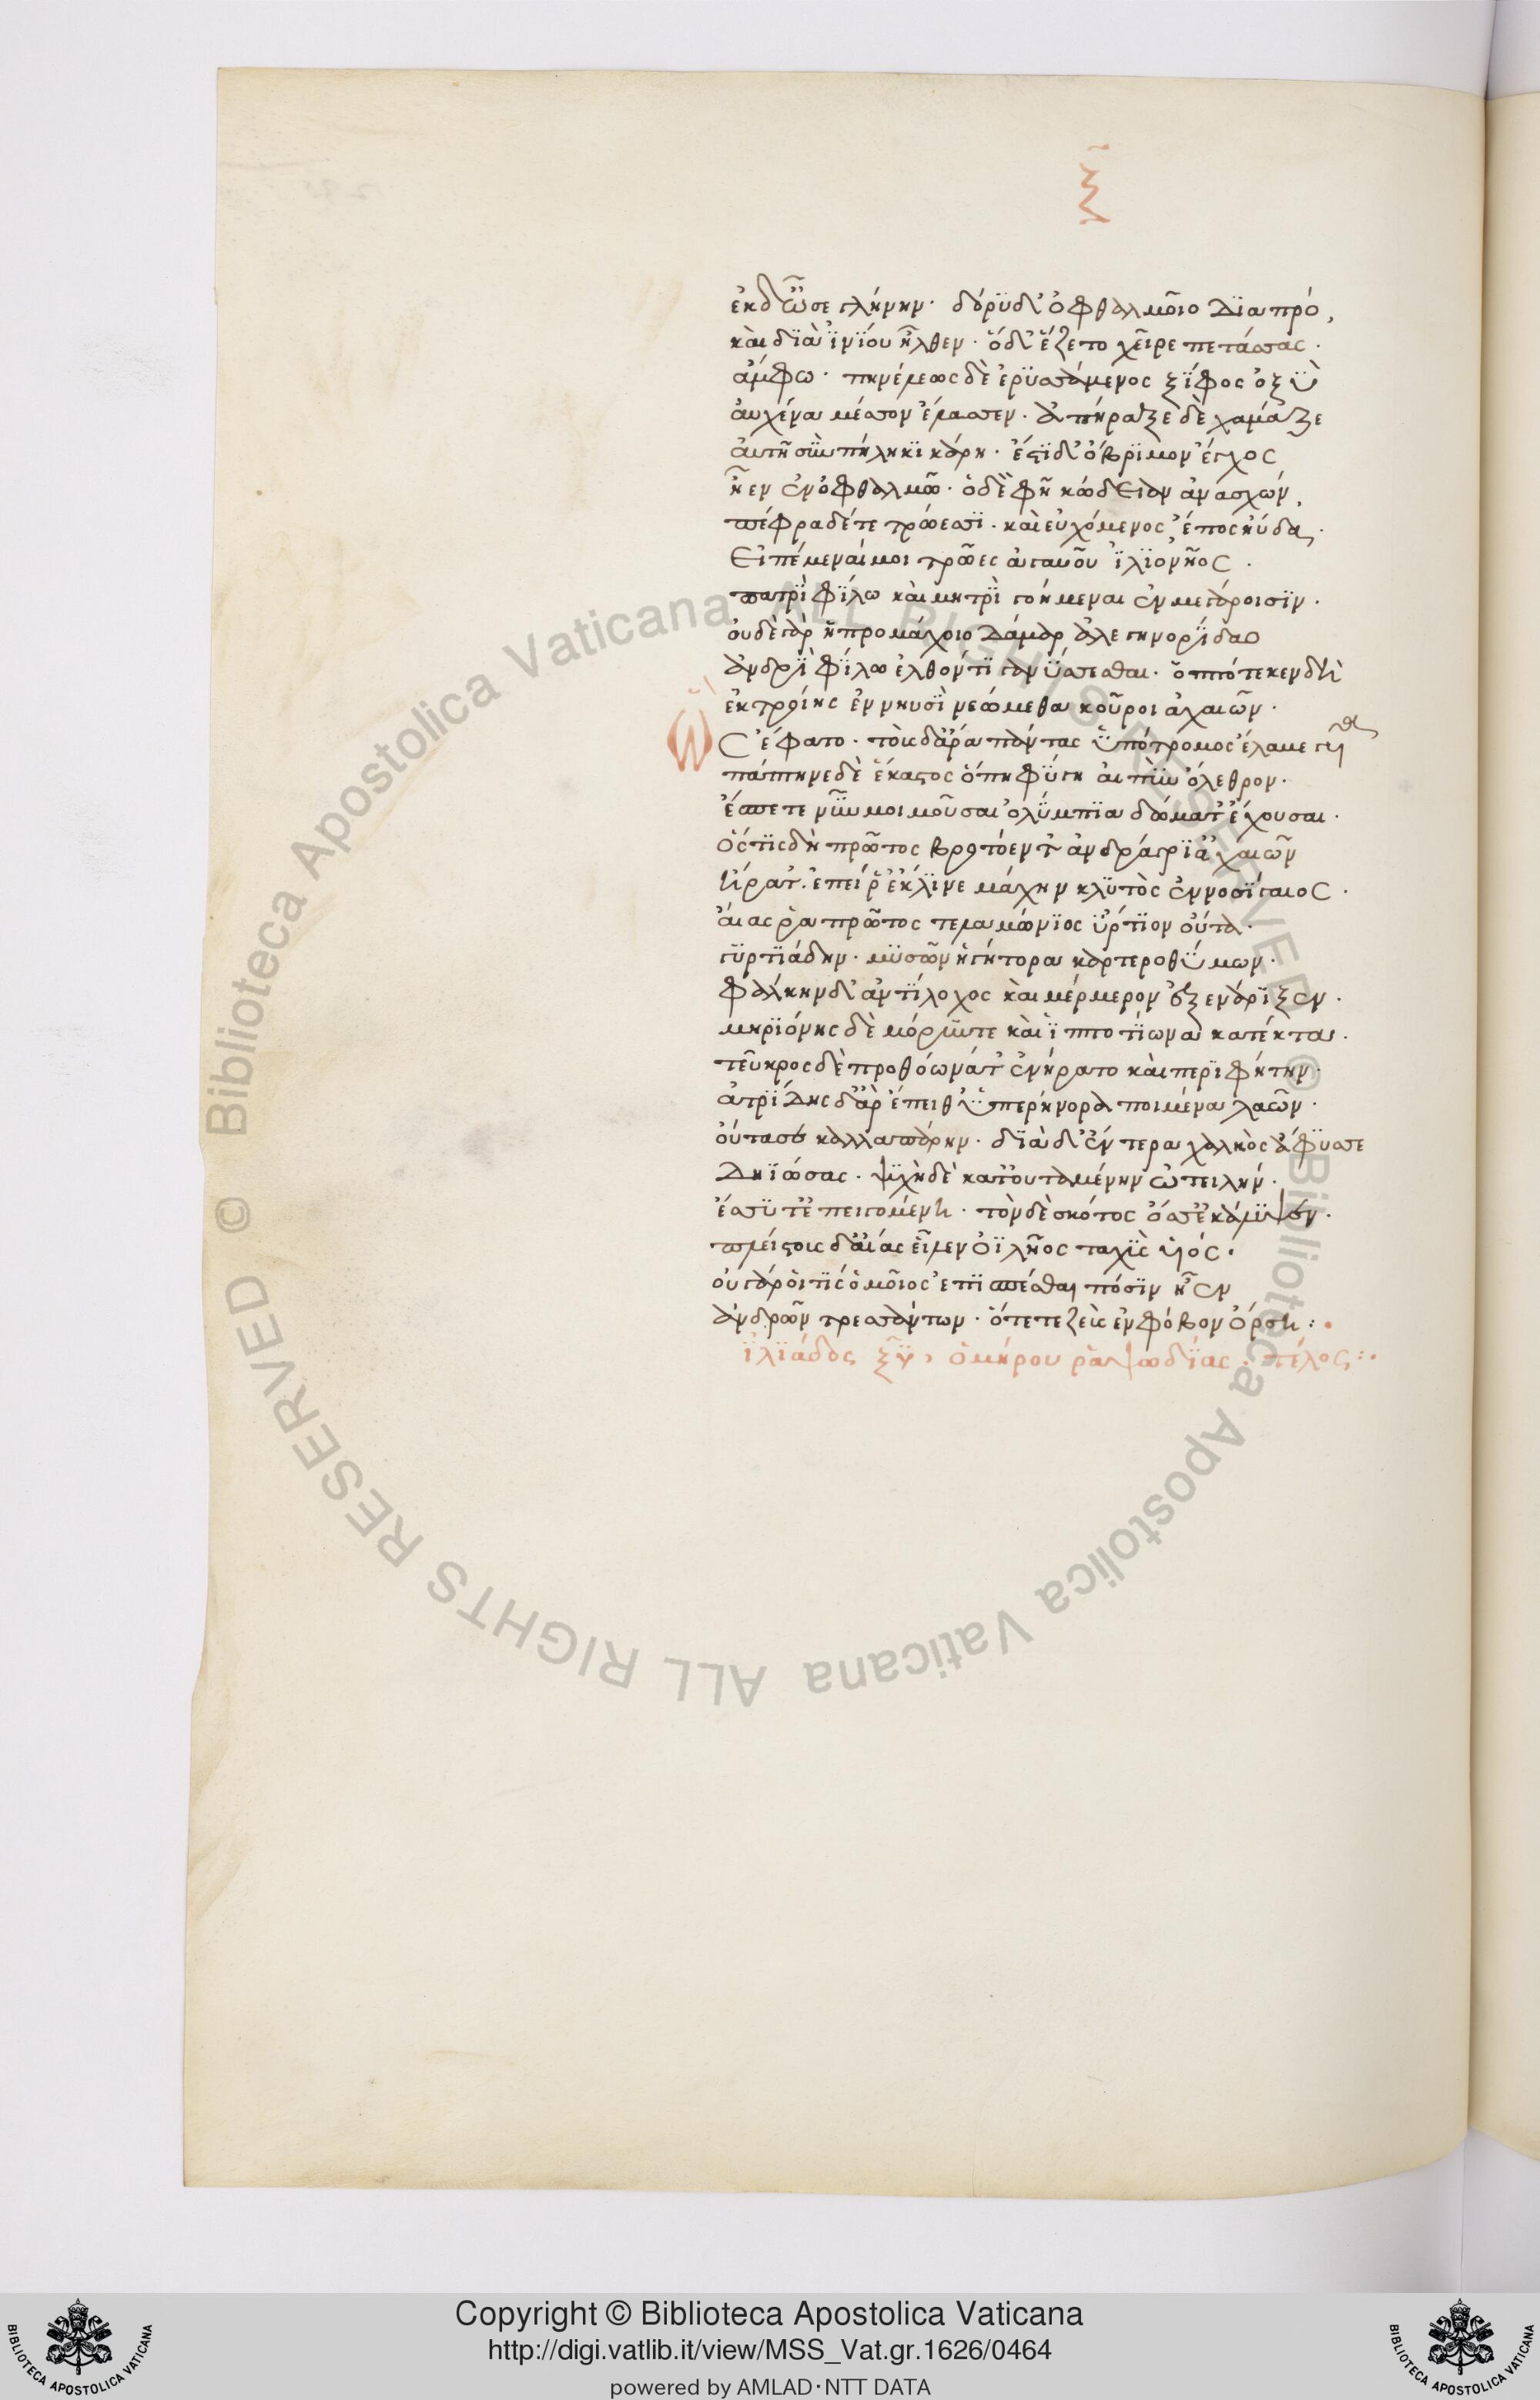 ξ̃
ἐκ δ' ὦσε γλήνην· δόρϋ δ' ὀφθαλμοῖο δϊαπρό,
καὶ δϊὰ ἰνίου ἦλθεν· ὁ δ' ἕζετο χεῖρε πετάσσας·
ἄμφω· πηνέλεως δὲ ἐρϋσσάμενος ξίφος ὀξὺ
αὐχένα μέσσον ἔλασσεν· ἀπήραξε δὲ χαμᾶζε
αὐτῆ σὺν πήληκϊ κάρη· ἔτϊ δ' ὄβρϊμον ἔγχος
ἦεν ἐν ὀφθαλμῶ· ὁ δὲ φῆ κώδειαν ἀνασχών,
πέφραδέ τε τρώεσσϊ· καὶ εὐχόμενος ἔπος ηὔδα·
Εἰπέμεναί μοι τρῶες ἀγαυοῦ ἰλϊονῆος·
πατρὶ φίλω καὶ μητρὶ γοήμεναι ἐν μεγάροισϊν·
οὐδὲ γὰρ ἡ προμάχοιο δάμαρ ἀλεγηνορίδαο
ἀνδρὶ φίλω ἐλθόντϊ γανύσσεται· ὁππότε κεν δὴ
ἐκ τροίης ἐν νηυσὶ νεώμεθα κοῦροι ἀχαιῶν·
Ὣς ἔφατο· τοὺς δ' ἄρα πάντας ὑπότρομος ἔλλαβε γυῖα
πάπτηνε δὲ ἕκαστος ὅπη φύγη αἰπὺν ὄλεθρον·
ἔσπετε νῦν μοι μοῦσαι ὀλύμπϊα δώματ' ἔχουσαι·
ὅς τϊς δὴ πρῶτος βροτόεντ' ἀνδράγρι' ἀχαιῶν
ἤρατ'· ἐπεί ῥ' ἔκλϊνε μάχην κλϋτὸς ἐννοσίγαιος·
αἴας ῥα πρῶτος τελαμώνϊος ὕρτϊον οὖτα·
γϋρτϊάδην· μϋσῶν ἡγήτορα καρτεροθύμων·
φάλκην δ' ἀντίλοχος καὶ μέρμερον ἐξενάρϊξεν·
μηρϊόνης δὲ μόρυν τε καὶ ἱπποτίωνα κατέκτα·
τεῦκρος δὲ προθόωνά τ' ἐνήρατο καὶ περϊφήτην·
ἀτρείδης δ' ἄρ' ἔπειθ' ὑπερήνορα ποιμένα λαῶν·
οὔτασε καλλαπάρην· δϊὰ δ' ἔντερα χαλκὸς ἄφϋσσε
δηϊώσας· ψϋχὴ δὲ κατ' οὐταμένην ὠτειλήν·
ἔσσϋτ' ἐπειγομένη· τὸν δὲ σκότος ὄσσε κάλϋψεν·
πλείστους δ' αἴας εἷλεν ὀϊλῆος ταχὺς ὑϊός·
οὐ γάρ οἵ τϊς ὁμοῖος ἐπϊσπέσθαι πόσϊν ἦεν
ἀνδρῶν τρεσσάντων· ὅτε τε ζεὺς ἐν φόβον ὄρση:·
ἰλϊάδος ξῦ, ὁμήρου ῥαψωδίας· τέλος:·
Copyright © Biblioteca Apostolica Vaticana
http://digi.vatlib.it/view/MSS_Vat.gr.1626/0464
powered by AMLAD·NTT DATA